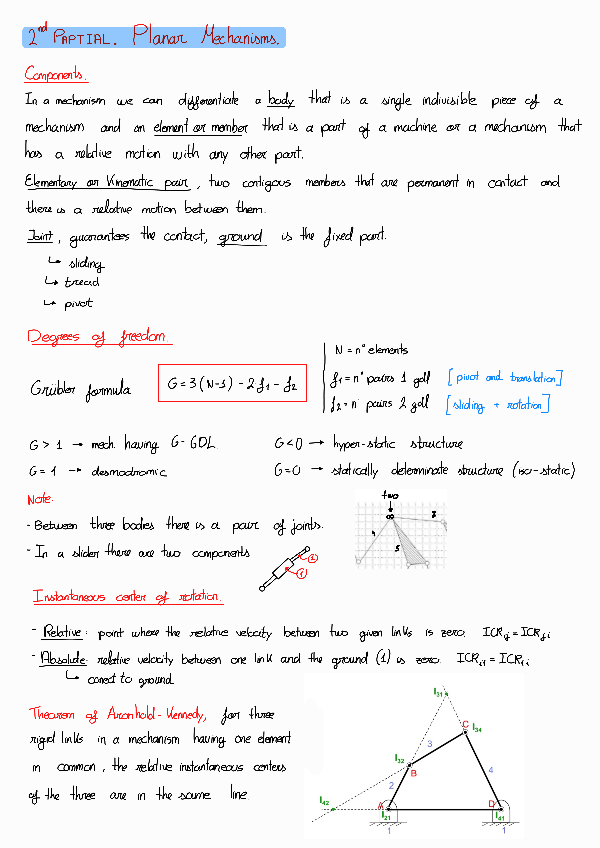 2nd PARTIAL. Planar Mechanisms.
Components.
In a mechanism we can differentiate a body that is a single indivisible piece of a
mechanism and an element or member that is a part of a machine or a mechanism that
has a relative motion with any other part.
Elementary or Kinematic pair, two contigous members that are permanent in contact and
there is a relative motion between them.
Joint, guarantees the contact, ground is the fixed part.
↳ sliding
↳ tread
↳ pivot
Degrees of freedom.
N = nº elements
Grübler formula G = 3(N-1) - 2f1 - f2
f1 = nº pairs 1 gdl [pivot and translation]
f2 = nº pairs 2 gdl [sliding + rotation]
G > 1 → mech. having G-GDL G < 0 → hyper-static structure
G = 1 → desmodromic G = 0 → statically determinate structure (iso-static)
Note.
two
- Between three bodies there is a pair of joints.
4 5 8
- In a slider there are two components
2
1
Instantaneous center of rotation.
- Relative: point where the relative velocity between two given links is zero. ICRij = ICRji
- Absolute: relative velocity between one link and the ground (1) is zero. ICRi1 = ICR1i
↳ coned to ground
Theorem of Aronhold-Kennedy, for three
rigid links in a mechanism having one element
in common, the relative instantaneous centers
of the three are in the same line.
I31
C I34
3
I32
B
4
2
I42
A D
I21 I41
1 1